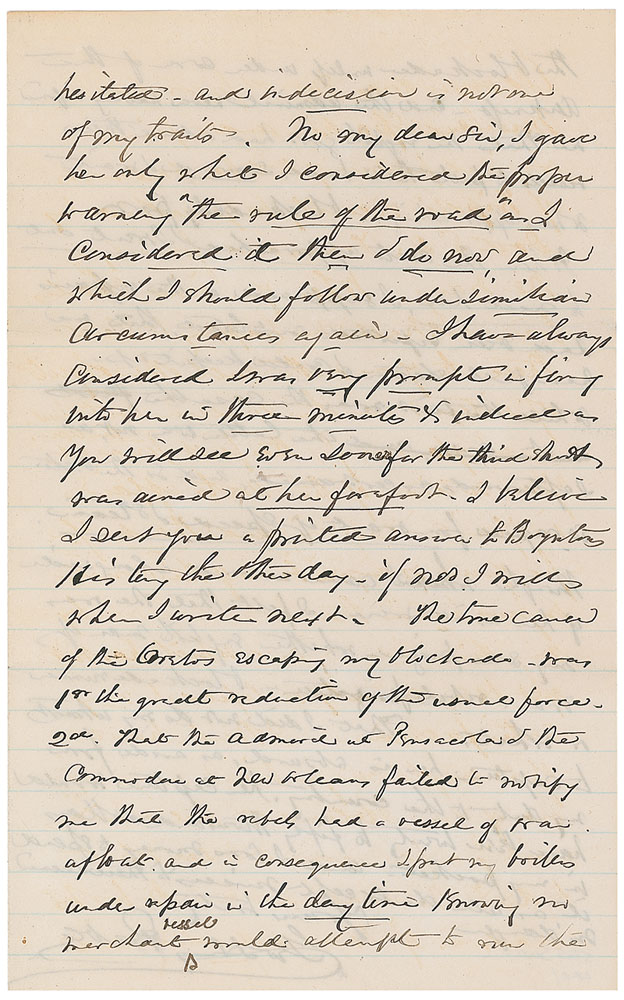 hesitated - and indecision is not one
of my traits. No my dear Sir, I gave
her only what I considered the proper
warning "the rule of the road" as I
Considered it then & do now, and
which I should follow under similiar
Circumstances again - I have always
Considered I was very prompt in firing
into her in three minutes & indeed as
you will see even sooner for the third shot
was aimed at her forefoot. I believe
I sent you a printed answer to Boyntons
History the other day - if not I will
when I write next. The true cause
of the Oretos escaping my blockade - was
1st the great reduction of the usual force -
2d. that the Admiral at Pensacola & the
Commodore at New Orleans failed to notify
me that the rebels had a vessel of war
afloat. and in consequence I put my boilers
under repair in the day time Knowing no
merchant vessel would attempt to run the